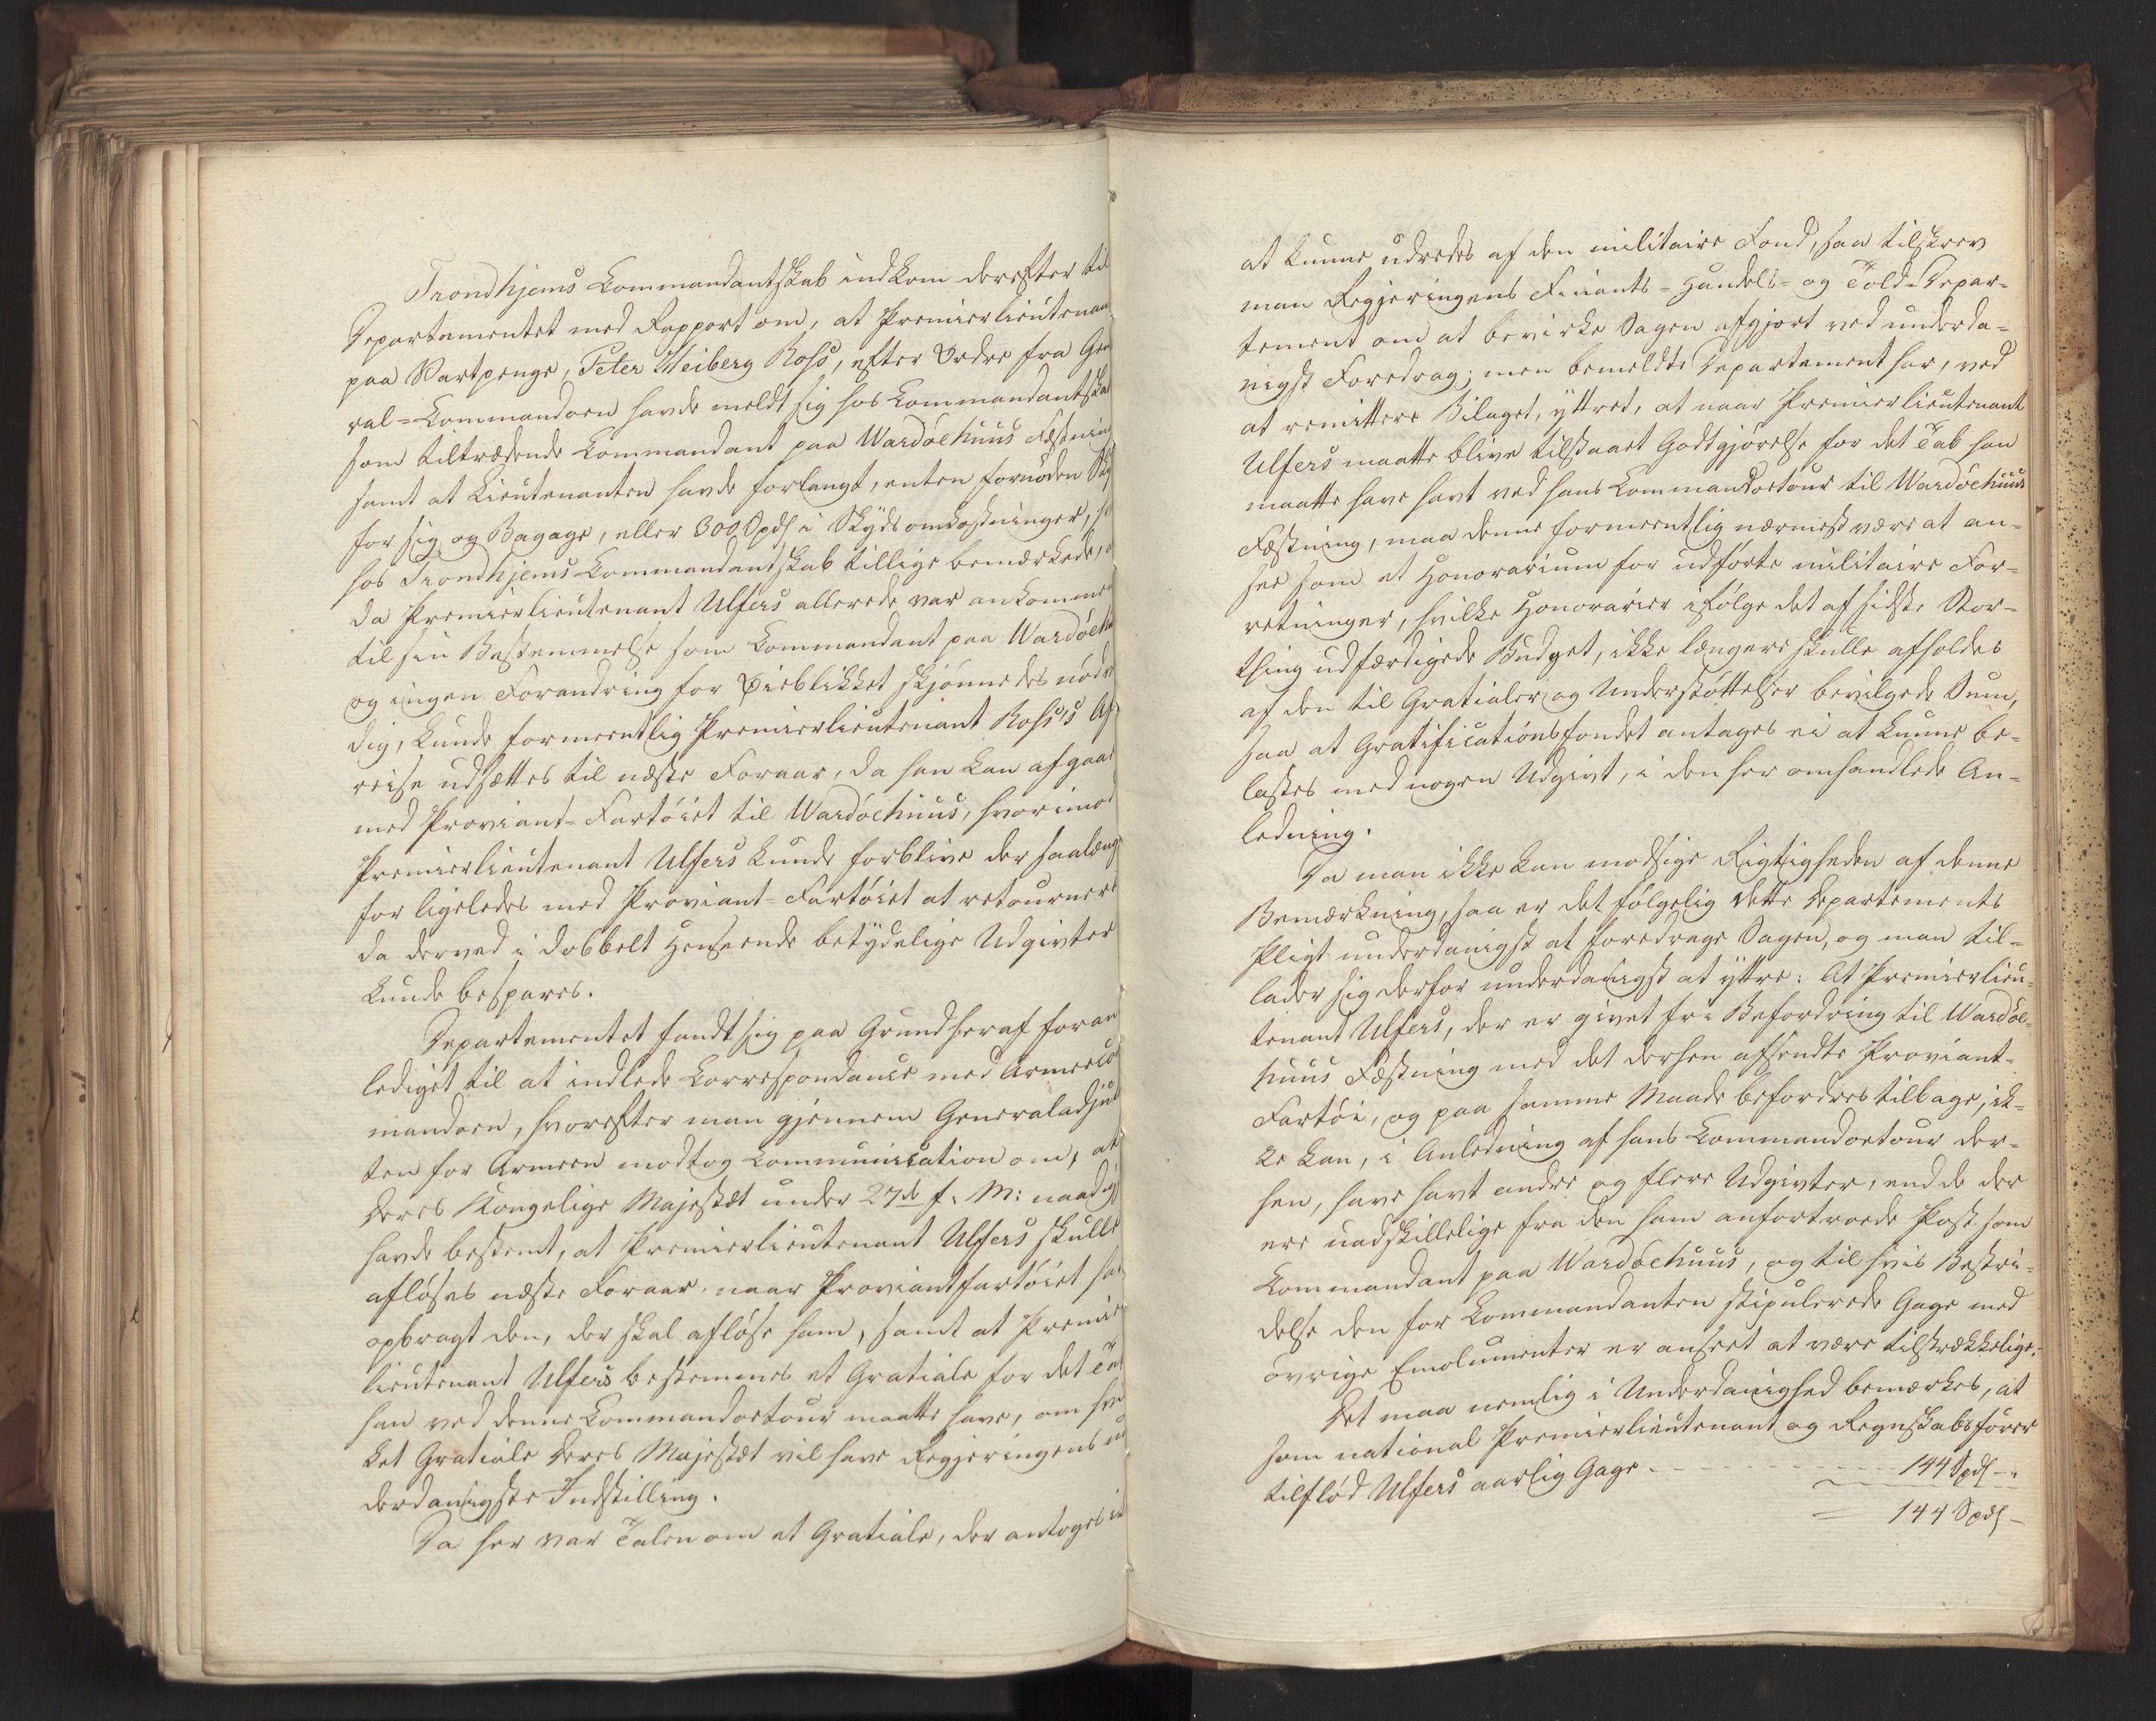 Trondhjems Commandantskab indkom derefter til
Departementet med Rapport om, at Premierlieutenan
paa Vartpenge, Peter Heiberg Ross, efter Ordre fra Gen
ral-Commandoen havde meldt sig hos Commandantskab
som tiltrædende Commandant paa Wardøehuus Fæstning
samt at Lieutenanten havde forlangt, enten fornøden Sky
for sig og Bagage, eller 300 Spd i Skydsomkostninger,
hos Trondhjems Commandantskab tillige bemærkede,
da Premierlieutenant Ulfers allerede var ankommen
til sin Bestemmelse som Commandant paa Wardøeh
og ingen Forandring for Øieblikket skjønnedes nødv
dig, kunde formeentlig Premierlieutenant Ross's Af
reise udsættes til næste Foraar, da han kan afgaae
med Proviant-Fartøiet til Wardøehuus, hvorimod
Premierlieutenant Ulfers kunde forblive der saalæng
for ligeledes med Proviant-Fartøiet at retournere
da derved i dobbelt Henseende betydelige Udgivter
kunde bespares.
Departementet fandt sig paa Grund heraf foran
lediget til at indlede Correspondance med Armeeco
mandoen, hvorefter man gjennem Generaladjut
ten for Armeen modtog Communication om, at
Deres Kongelige Majestæt under 27de f. M: naadig
havde bestemt, at Premierlieutenant Ulfers skulle
afløses næste Foraar, naar Proviantfartøiet ha
opbragt den, der skal afløse ham, samt at Premie
lieutenant Ulfers bestemmes et Gratiale for det Ta
han ved denne Commandoetour maatte have, om hvil
ket Gratiale Deres Majestæt vil have Regjeringens un
derdanigste Indstilling.
Da her var Talen om et Gratiale, der antoges ik
at kunne udredes af den militaire Fond, saa tilskrev
man Regjeringens Finants- Handels- og Told-Depar-
tement om at bevirke Sagen afgjort ved underda-
nigst Foredrag; men bemeldte Departement har, ved
at remittere Bilaget, yttret, at naar Premierlieutenant
Ulfers maatte blive tilstaaet Godtgjørelse for det Tab han
maatte have havt ved hans Commandoetour til Wardøehuus
Fæstning, maa denne formeentlig nærmest være at an-
see som et Honorarium for udførte militaire For-
retninger, hvilke Honorarier ifølge det af sidste Stor-
thing udfærdigede Budget, ikke længere skulle afholdes
af den til Gratialer og Understøttelser bevilgede Sum,
saa at Gratificationsfondet antages ei at kunne be-
lastes med nogen Udgivt, i den her omhandlede An-
ledning.
Da man ikke kan modsige Rigtigheden af denne
Bemærkning, saa er det følgelig dette Departements
Pligt underdanigst at foredrage Sagen, og man til-
lader sig derfor underdanigst at yttre: At Premierlieu-
tenant Ulfers, der er givet fri Befordring til Wardøe-
huus Fæstning med det derhen afsendte Proviant-
Fartøi, og paa samme Maade befordres tilbage, ik-
ke kan, i Anledning af hans Commandoetour der-
hen, have havt andre og flere Udgivter, end de der
ere uadskillelige fra den ham anfortroede Post som
Commandant paa Wardøehuus, og til hvis Bestri-
delse den for Commandanten stipulerede Gage med
øvrige Emolumenter er anseet at være tilstrækkelige.
Det maa nemlig i Underdanighed bemærkes, at
som national Premierlieutenant og Regnskabsfører
tilflød Ulfers aarlig Gage . - - - - - 144 Spd -.
= 144 Spd -